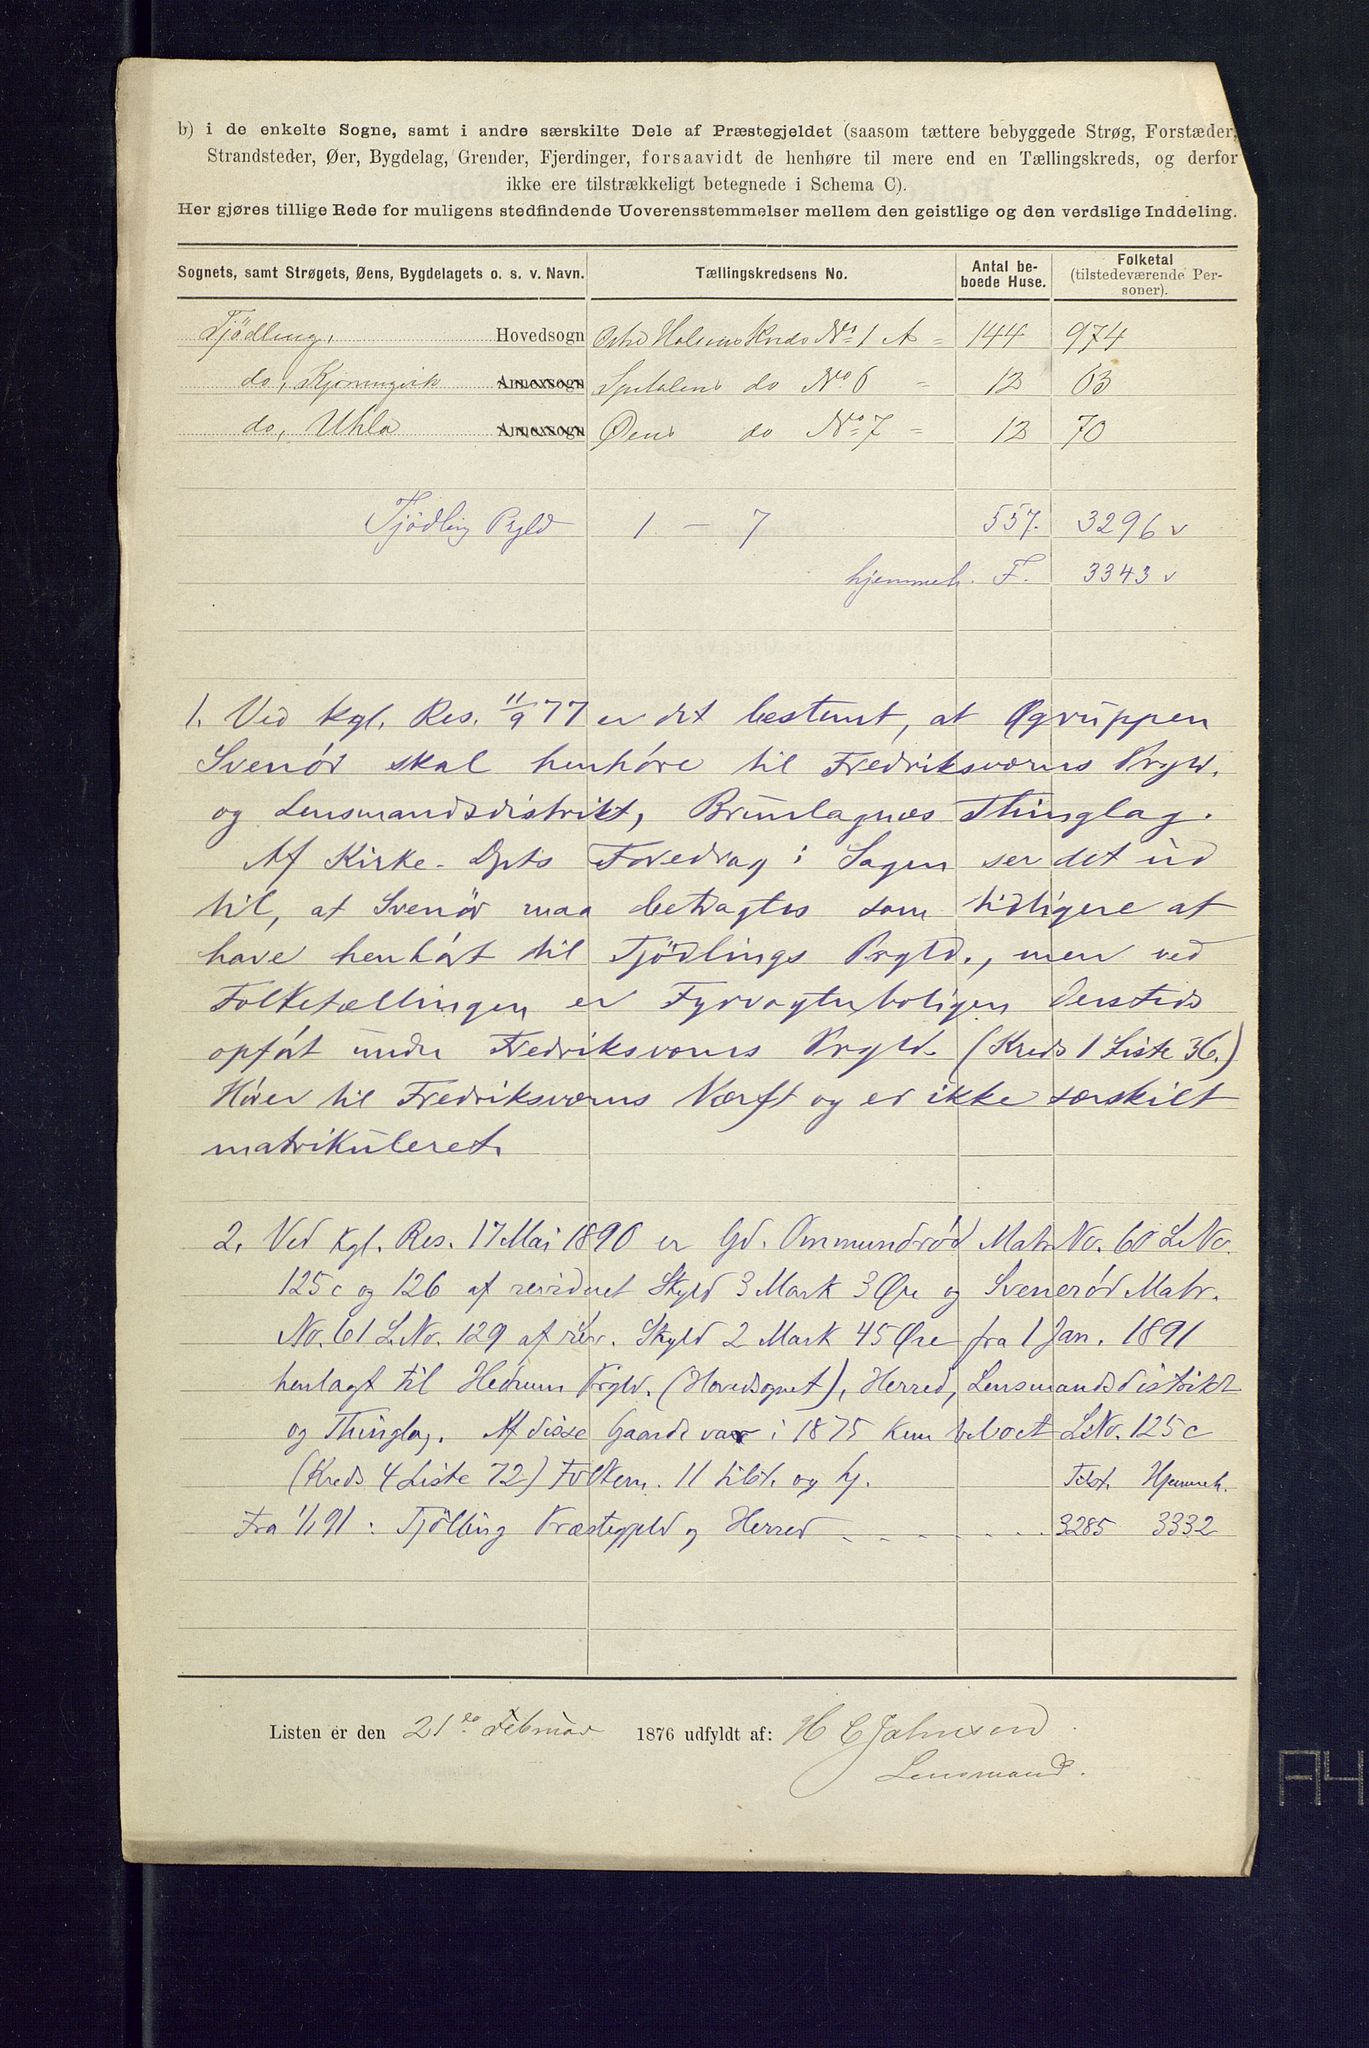 b) i de enkelte Sogne, samt i andre særskilte Dele af Præstegjeldet (saasom tættere bebyggede Strøg, Forstæder,
Strandsteder, Øer, Bygdelag, Grender, Fjerdinger, forsaavidt de henhøre til mere end en Tællingskreds, og derfor
ikke ere tilstrækkeligt betegnede i Schema C).
Her gjøres tillige Rede for muligens stedfindende Uoverensstemmelser mellem den geistlige og den verdslige Inddeling.
Sognets, samt Strøgets, Øens, Bygdelagets o. s. v. Navn. Tællingskredsens No. Antal beboede Huse. Folketal (tilstedeværende Personer).
Tjödling, Hovedsogn Kreds No 1 A 144 974
do, Annexsogn do No 6 12 63
do, Uhla Annexsogn Øens do No 7 12 70
Tjödling Prgld 1 - 7 557. 3296 v
hjemmeh. F. 3343 v
1. Ved kgl. Res. 11/9 77 er det bestemt, at Øgruppen
Svenör skal henhöre til Fredriksværns Prgld.
og Lensmandsdistrikt, Brunlagnæs Thinglag.
Af Kirke-Dpts Foredrag i Sagen ser det ud
til, at Svenör maa betragtes som tidligere at
have henhört til Tjödlings Prgld., men ved
Folketællingen er Fyrvogterboligen dersteds
opfört under Fredriksværns Prgld. (Kreds 1 Liste 36.)
Hörer til Fredriksværns Værft og er ikke særskilt
matrikuleret.
2. Ved Kgl. Res. 17 Mai 1890 er Gd. Ommundröd Matr No. 60 L.No.
125c og 126 af revideret Skyld 3 Mark 3 Øre og Svenerød Matr.
No. 61 L.No. 129 af rev. Skyld 2 Mark 45 Øre fra 1 Jan. 1891
henlagt til Hedrum Prgld. (Hovedsognet), Herred, Lensmandsdistrikt
og Thinglag. Af disse Gaarde var i 1875 kun beboet L.No. 125c
(Kreds 4 Liste 72) Folkem. 11 tilst. og hj. Tilst. Hjemmeh.
Fra 1/1 91. Tjölling Præstegjeld og Herred 3285 3332
Listen er den 21de Februar 1876 udfyldt af: H C Johnsen
Lensmand.
A4